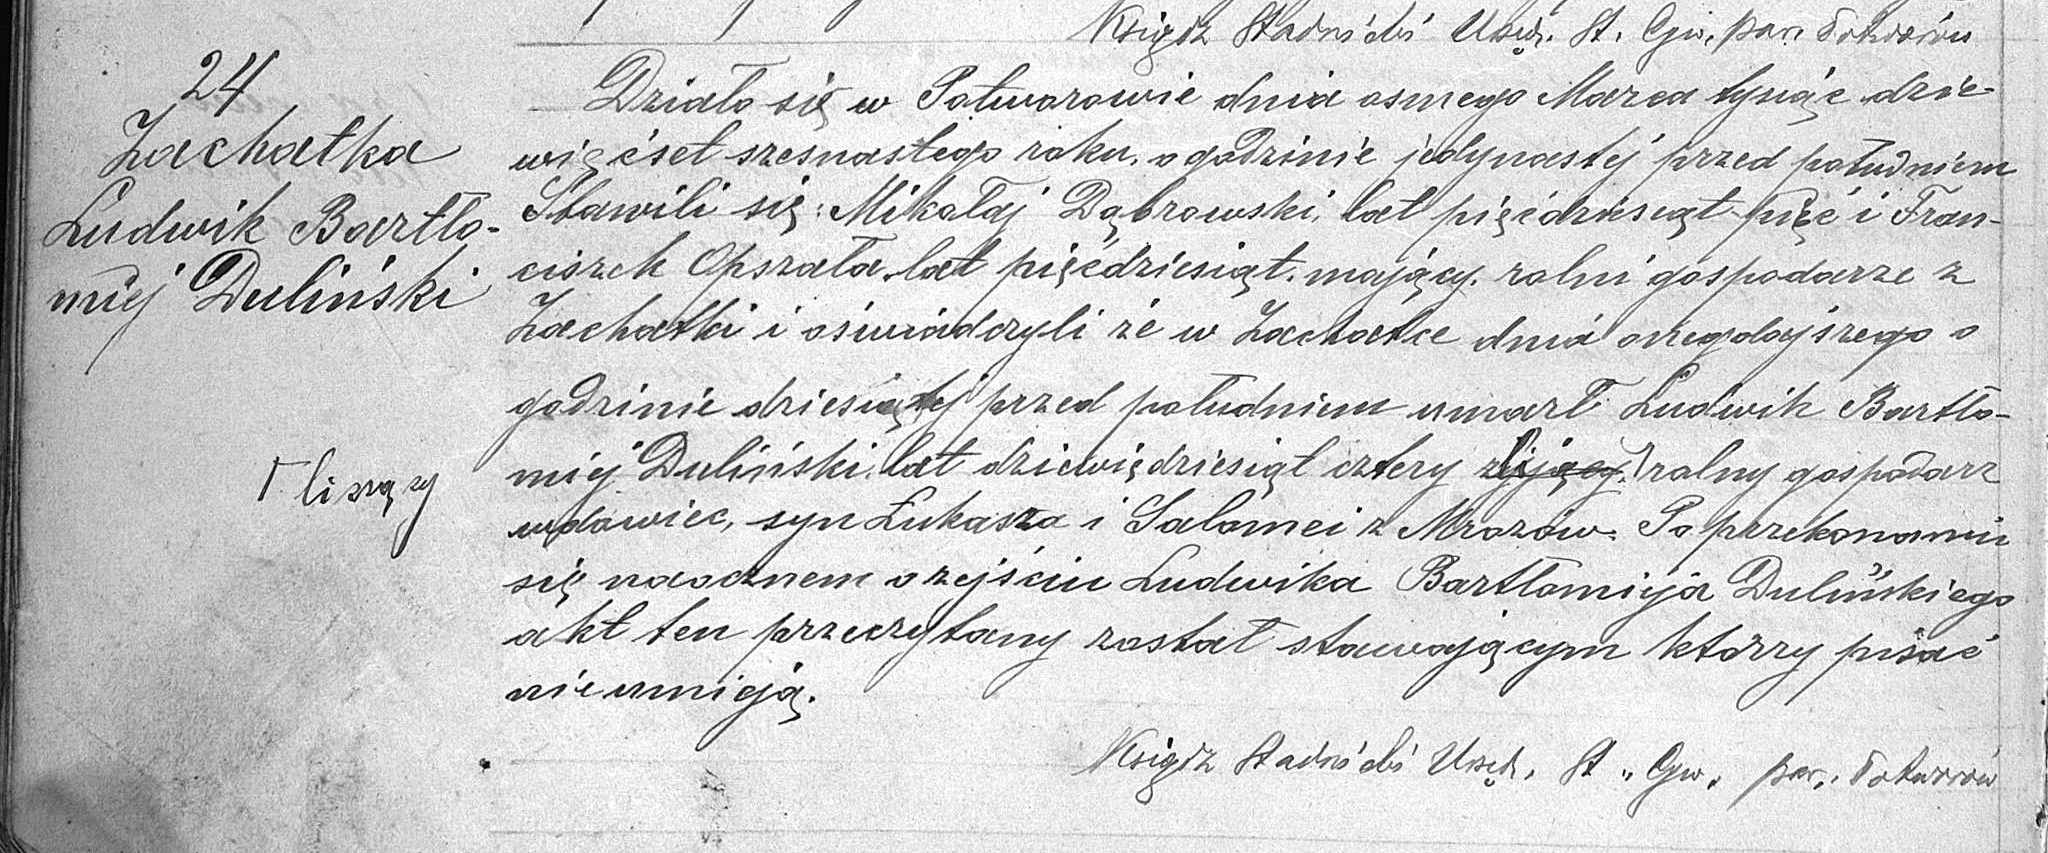 Ksiądz Stadnicki Urzęd. St. Cyw. par. Potworów
24
Zachatka
Ludwik Bartło-
miej Duliński
Działo się w Potworowie dnia osmego Marca tysiąc dzie-
więćset szesnastego roku. o godzinie jedynastej przed południem
Stawili się: Mikołaj Dąbrowski, lat pięćdziesiąt pięć i Fran-
ciszek Opszała. lat pięćdziesiąt. mający. rolni gospodarze z
Zachatki i oświadczyli że w Zachatce dnia onegdajszego o
godzinie dziesiątej przed południem umarł Ludwik Bartło-
miej Duliński. lat dziewiędziesiąt cztery żyjący. rolny gospodarz
Γ liczący
wdowiec, syn Łukasza i Salomei z Mrozów. Po przekonaniu
się naocznem o zejściu Ludwika Bartłomieja Dulińskiego
akt ten przeczytany został stawającym którzy pisać
nieumieją.
Ksiądz Stadnicki Urzęd. St. Cyw. par. Potworów